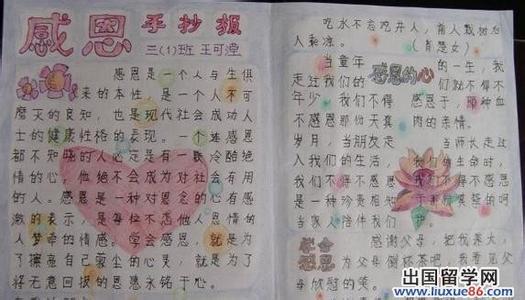 感恩 手抄报
三(1)班 王可滢
感恩是一个人与生俱
来的本性,是一个人不可
磨灭的良知,也是现代社会成功人
士的健康性格的表现。一个连感恩
都不知晓的人必定是有一颗冷酷绝
情的心,他绝不会成为对社会有用
的人。感恩是一种对恩惠的心有感
激的表示,是每位不忘他人恩情的
人梦牵的情感。学会感恩,就是为
了擦亮自己蒙尘的心灵,就是为了
将无意回报的恩惠永铭于心。
吃水不忘挖井人,前人栽树后
人乘凉。
感恩的心
当童年 的一生,我
走过我们的 们就不得不
年少,我们不得 感恩于,那种血
不感恩那份天真 肉的亲情。
岁月,当朋友走 当师长走过
入我们的生活, 我们的生命时,
我们不得不感恩 我们不得不感恩
是一种珍贵相知 于
当家人陪伴我们
学会
感恩
感谢父母,把我养大,
为父母倒杯茶吧,我要当
父母欣慰的笑。
出国留学网
www.liuxue86.com